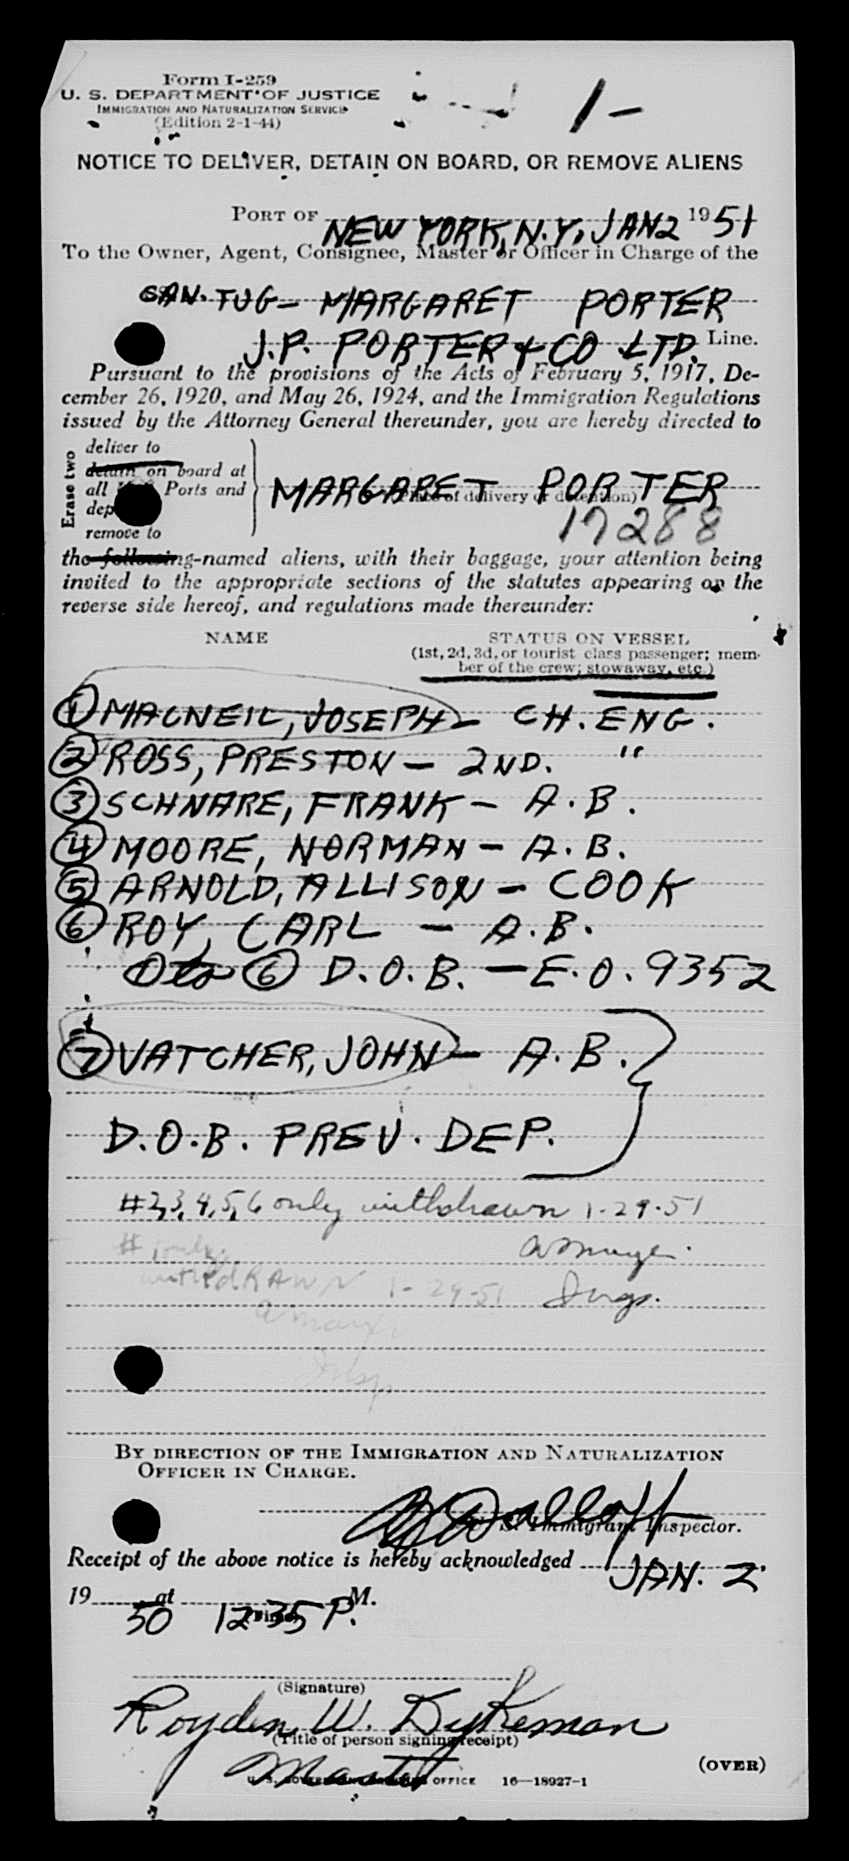 Form I-259
U. S. DEPARTMENT OF JUSTICE
IMMIGRATION AND NATURALIZATION SERVICE
(Edition 2-1-44)
1-
NOTICE TO DELIVER, DETAIN ON BOARD, OR REMOVE ALIENS
PORT OF NEW YORK, N.Y. JAN 2 1951
To the Owner, Agent, Consignee, Master or Officer in Charge of the
CAN. TUG- MARGARET PORTER
J.P. PORTER & CO LTD. Line.
Pursuant to the provisions of the Acts of February 5, 1917, De-
cember 26, 1920, and May 26, 1924, and the Immigration Regulations
issued by the Attorney General thereunder, you are hereby directed to
Erase two
deliver to
detain on board at
all Ports and
remove to
MARGARET PORTER
(Place of delivery or detention)
17288
the following-named aliens, with their baggage, your attention being
invited to the appropriate sections of the statutes appearing on the
reverse side hereof, and regulations made thereunder:
NAME STATUS ON VESSEL
(1st, 2d, 3d, or tourist class passenger; mem-
ber of the crew; stowaway, etc.)
① MACNEIL, JOSEPH - CH. ENG.
② ROSS, PRESTON - 2ND. "
③ SCHNARE, FRANK - A.B.
④ MOORE, NORMAN - A.B.
⑤ ARNOLD, ALLISON - COOK
⑥ ROY, CARL - A.B.
① to ⑥ D.O.B. - E.O. 9352
⑦ VATCHER, JOHN - A.B.
D.O.B. PREV. DEP.
#2,3,4,5,6 only withdrawn 1-29-51
# 1 only
withdRAWN 1-29-51
Insp.
Insp
BY DIRECTION OF THE IMMIGRATION AND NATURALIZATION
OFFICER IN CHARGE.
S. Immigrant Inspector.
Receipt of the above notice is hereby acknowledged JAN. 2.
1950 at 12 35 P. M.
(Signature)
Royden W. Dykeman
(Title of person signing receipt)
Master
(OVER)
U. S. GOVERNMENT PRINTING OFFICE 16—18927-1